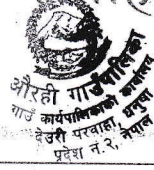 औरही गाउँपालिका
गाउँ कार्यपालिकाको कार्यालय
देउरी परवाहा, धनुषा
प्रदेश नं. २, नेपाल